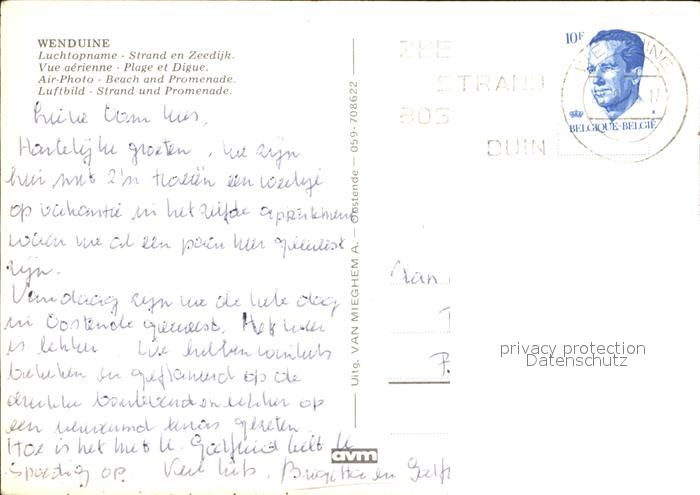 WENDUINE
Luchtopname - Strand en Zeedijk.
Vue aérienne - Plage et Digue.
Air-Photo - Beach and Promenade.
Luftbild - Strand und Promenade.
Lieve Oom
Hartelijke groeten, we zijn
hier met z'n een weekje
op vakantie in het zelfde appartement
waar we al een paar keer geweest
zijn.
Vandaag zijn we de hele dag
in Oostende geweest. Het weer
is lekker. We hebben winkels
bekeken en geflaneerd op de
drukke boulevard en lekker op
een terras gezeten.
Hoe is het met U. belt U
spoedig op. Brigitte en
Uitg. VAN MIEGHEM A. — Oostende — 059-708622
avm
ZEE
STRAND
BOS
DUIN
WENDUINE
17
10F
BELGIQUE-BELGIË
privacy protection
Datenschutz